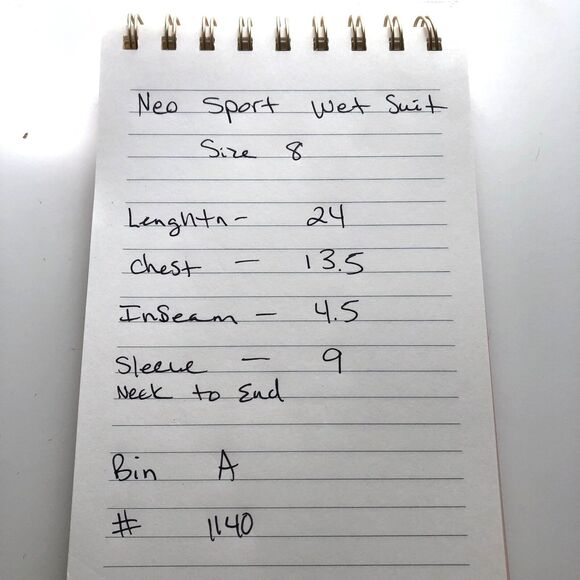 Neo Sport Wet Suit
Size 8
Lenghtn - 24
Chest - 13.5
InSeam - 4.5
Sleeve - 9
Neck to End
Bin A
# 1140